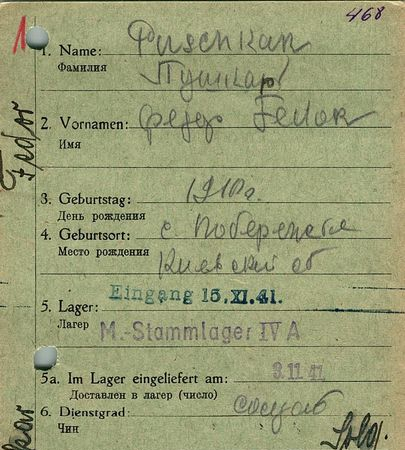 468
1
1. Name: Puschkar
Фамилия Пушкарь
2. Vornamen: Федор Fedor
Имя
Fedor
3. Geburtstag: 1910г.
День рождения
4. Geburtsort: с.
Место рождения Киевский об
Eingang 15. XI. 41.
5. Lager:
Лагерь M.-Stammlager IV A
5a. Im Lager eingeliefert am: 3.11.41
Доставлен в лагерь (число)
6. Dienstgrad: солдат
Чин Sold.